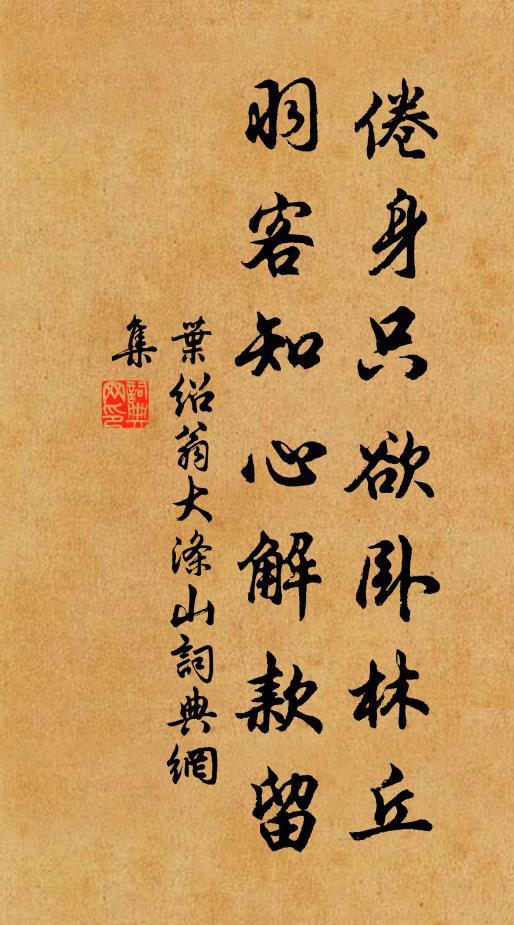 倦身只欲卧林丘
羽客知心解款留
葉紹翁大滌山詞典網
集
詞典網印